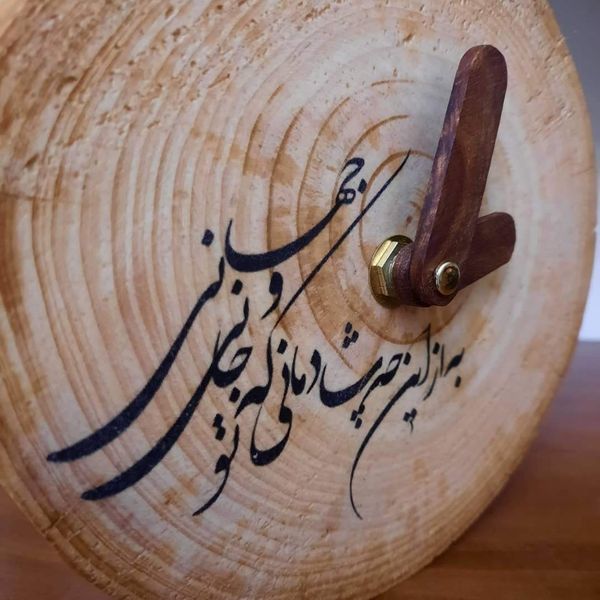 به از این چه شادمانی که تو جانی و جهانی